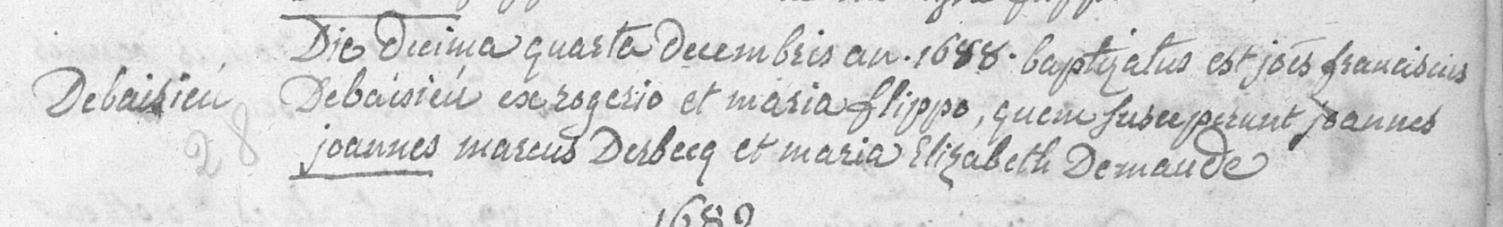 Die decima quarta decembris an. 1688. baptizatus est joes franciscus
Debaisieu Debaisieu ex rogerio et maria flippo, quem susceperunt joannes
28 joannes marcus Derbecq et maria Elizabeth Demaude
1689